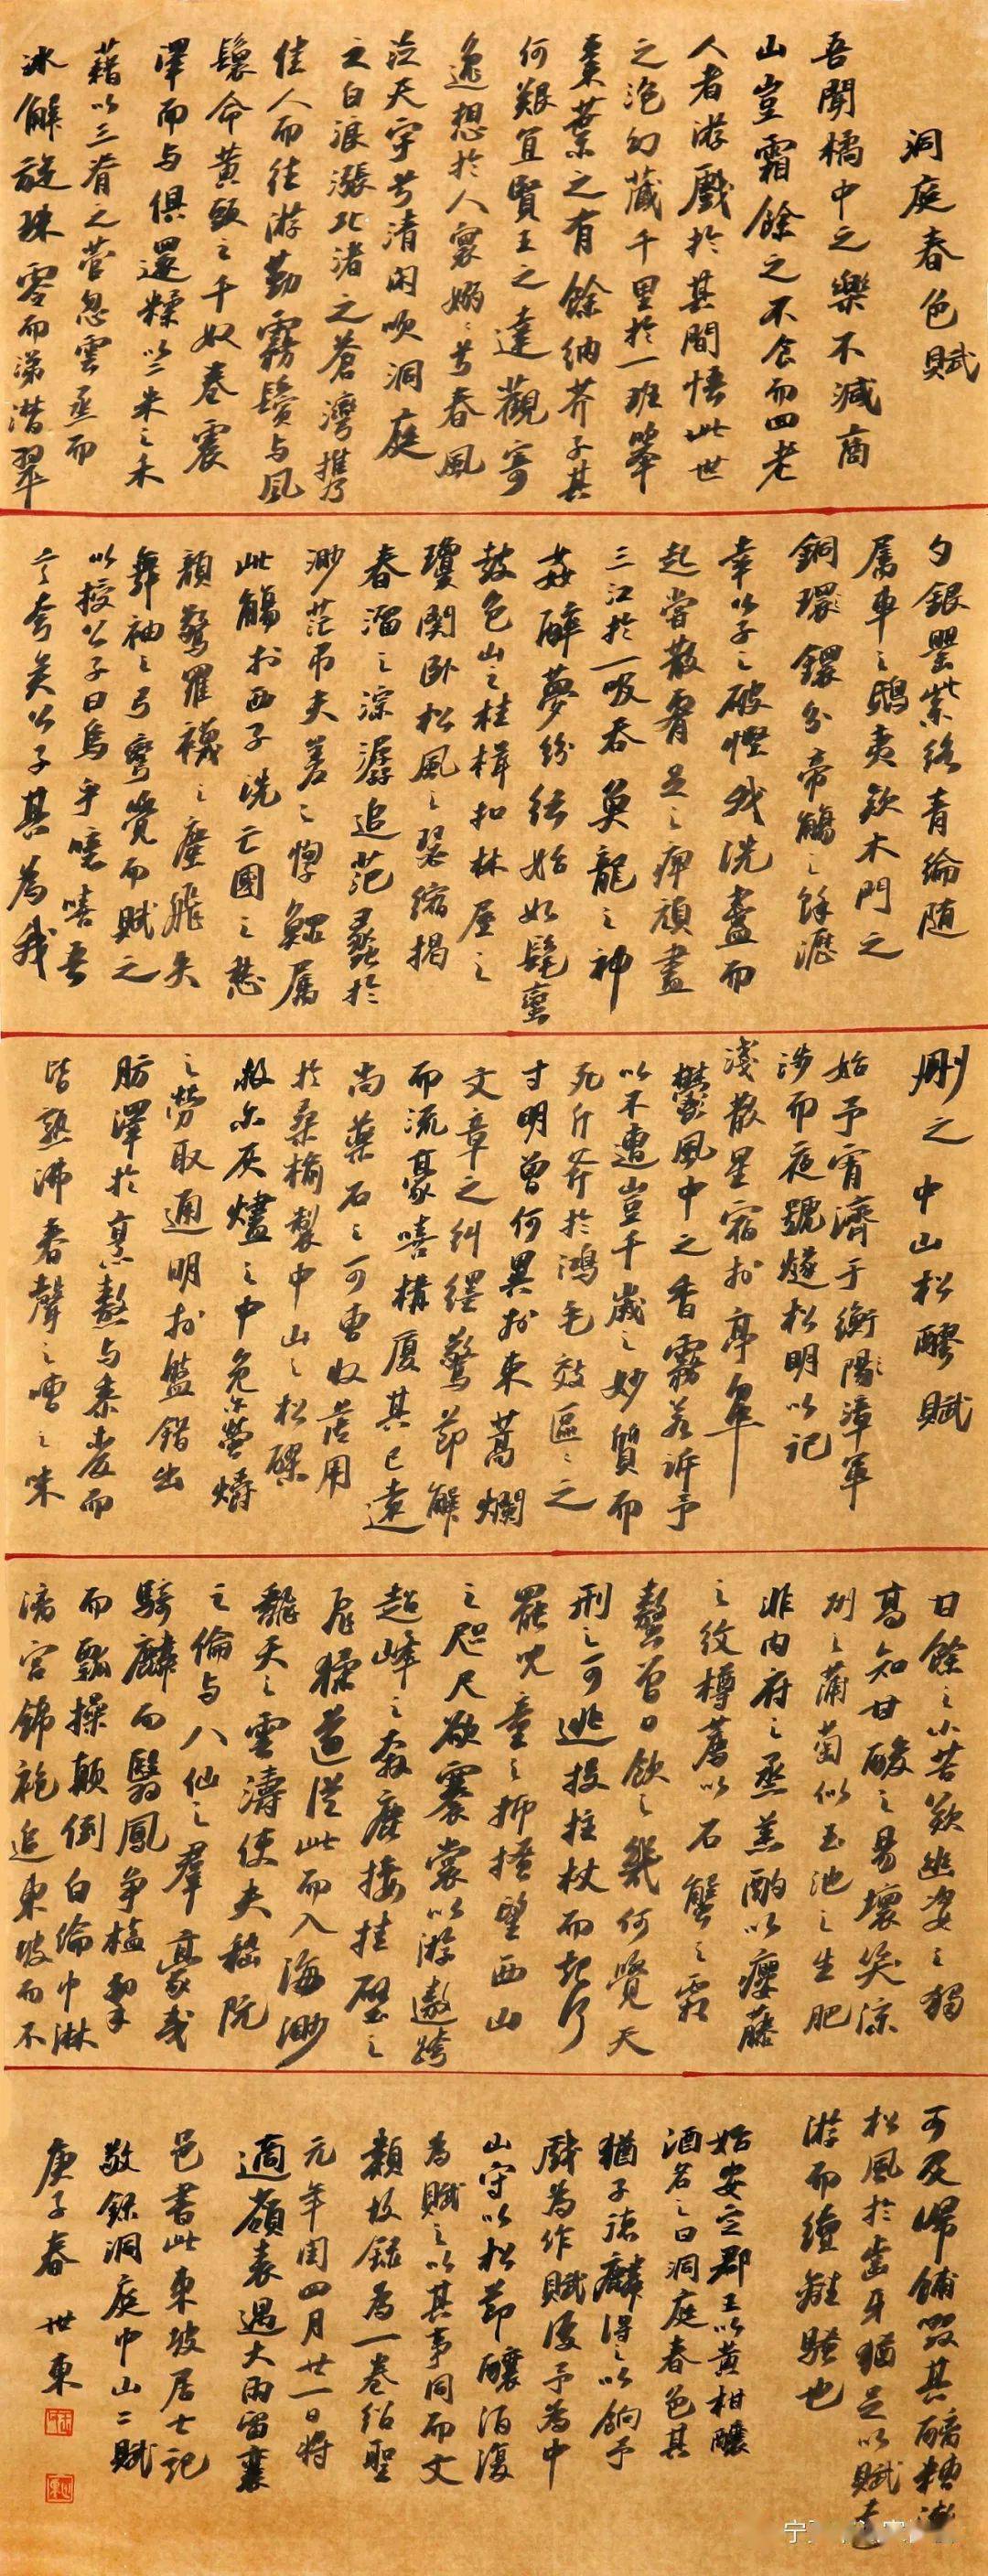 洞庭春色賦
吾聞橘中之樂不減商
山豈霜餘之不食而四老
人者游戲於其間悟此世
之泡幻藏千里於一班舉
棗葉之有餘納芥子其
何艱宜賢王之達觀寄
逸想於人寰嫋〻兮春風
泛天宇兮清閑吹洞庭
之白浪漲北渚之蒼灣攜
佳人而往游勤霧鬢與風
鬟命黃頭之千奴卷震
澤而与俱還糅以二米之禾
藉以三脊之菅忽雲蒸而
冰解旋珠零而涕潸翠
勺銀罌紫絡青綸随
屬車之鴟夷欵木門之
銅環鐶分帝觴之餘瀝
幸公子之破慳我洗盞而
起嘗散腰足之痺頑盡
三江於一吸吞魚龍之神
姦醉夢紛紜始如髦蠻
鼓包山之桂楫扣林屋之
瓊関卧松風之瑟縮揭
春溜之淙潺追范蠡於
渺茫吊夫差之惸鰥屬
此觴於西子洗亡國之愁
顏驚羅襪之塵飛失
舞袖之弓彎覺而賦之
以授公子曰烏乎噫嘻吾
言夸矣公子其為我
刪之 中山松醪賦
始予宵濟于衡漳軍
涉而夜號燧松明以記
淺散星宿於亭皋
鬱風中之香霧若訴予
以不遭豈千歲之妙質而
死斤斧於鴻毛效區〻之
寸明曾何異於束蒿爛
文章之糾纆驚節解
而流膏嘻構厦其已遠
尚藥石之可曹收薄用
於桑榆製中山之松醪
救尔灰燼之中免尔螢爝
之勞取通明於盤錯出
肪澤於烹熬与黍麦而
皆熟沸舂聲之嘈〻味
甘餘之小苦歎幽姿之獨
高知甘酸之易壞笑涼
州之蒲萄似玉池之生肥
非内府之蒸羔酌以癭藤
之紋樽薦以石蟹之霜
螯曾日飲之幾何覺天
刑之可逃投拄杖而起行
罷兒童之抑搔望西山
之咫尺欲褰裳以游遨跨
超峰之奔鹿接挂壁之
飛猱遂從此而入海渺
翻天之雲濤使夫嵇阮
之倫与八仙之羣豪或
騎麟而翳鳳争榼挈
而瓢操顛倒白綸巾淋
漓宫錦袍追東坡而不
可及歸餔歠其醨糟漱
松風於齒牙猶足以賦遠
游而續離騷也
始安定郡王以黄柑釀
酒名之曰洞庭春色其
猶子德麟得之以餉予
戲為作賦後予為中
山守以松節釀酒復
為賦之以其事同而文
類故録為一卷紹聖
元年閏四月廿一日將
適嶺表遇大雨留襄
邑書此東坡居士記
敬録洞庭中山二賦
庚子春 世東